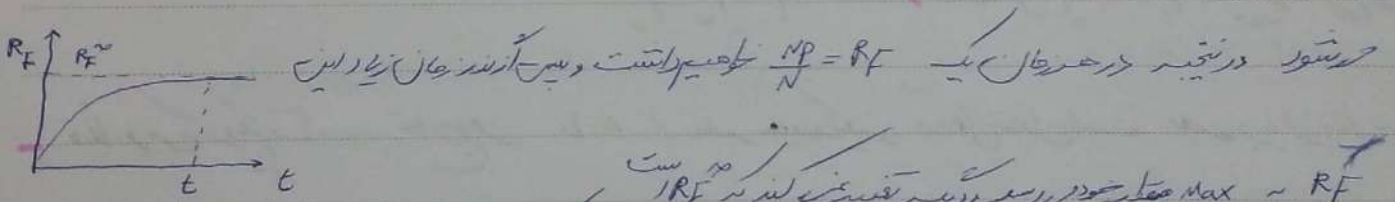 R_F R_F^∞
می‌شود در نتیجه در هر زمان یک R_F = NP/N خواهیم داشت و پس از گذشت زمان زیاد این
t t
R_F به Max مقدار خود می‌رسد و دیگر تغییر نمی‌کند که R_F^∞ است